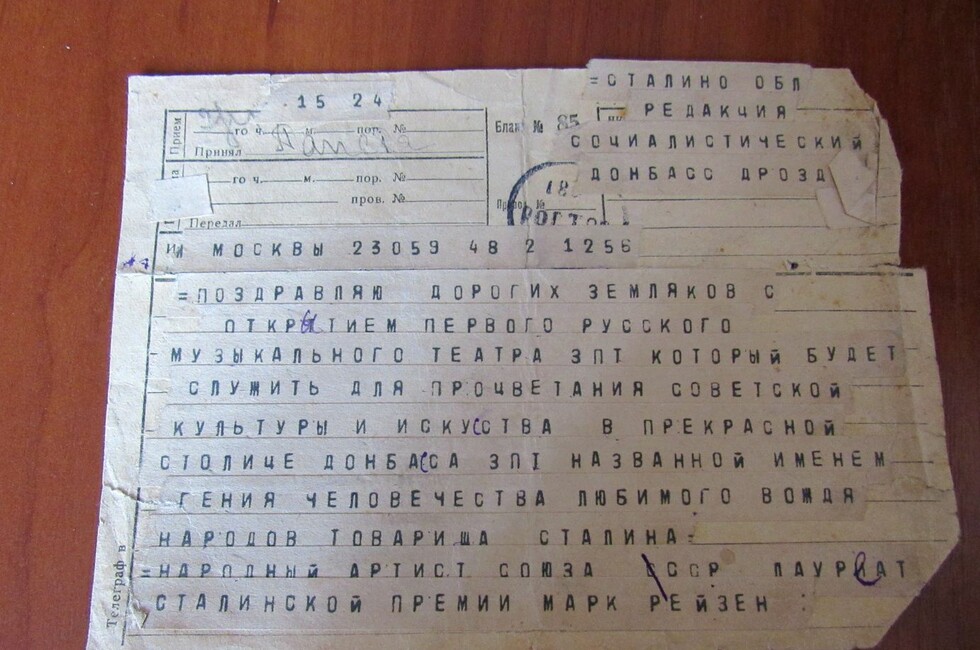 =СТАЛИНО ОБЛ
РЕДАКЦИЯ
СОЦИАЛИСТИЧЕСКИЙ
ДОНБАСС ДРОЗД
15 24
Прием
го ч. м. пор. №
Принял
го ч. м. пор. №
пров. №
Передал
Бланк № 85
18
ИЙ МОСКВЫ 23059 48 2 1256
=ПОЗДРАВЛЯЮ ДОРОГИХ ЗЕМЛЯКОВ С
ОТКРЫТИЕМ ПЕРВОГО РУССКОГО
МУЗЫКАЛЬНОГО ТЕАТРА ЗПТ КОТОРЫЙ БУДЕТ
СЛУЖИТЬ ДЛЯ ПРОЦВЕТАНИЯ СОВЕТСКОЙ
КУЛЬТУРЫ И ИСКУССТВА В ПРЕКРАСНОЙ
СТОЛИЦЕ ДОНБАССА ЗПТ НАЗВАННОЙ ИМЕНЕМ
ГЕНИЯ ЧЕЛОВЕЧЕСТВА ЛЮБИМОГО ВОЖДЯ
НАРОДОВ ТОВАРИЩА СТАЛИНА=
=НАРОДНЫЙ АРТИСТ СОЮЗА СССР ЛАУРЕАТ
СТАЛИНСКОЙ ПРЕМИИ МАРК РЕЙЗЕН :
Телеграф в